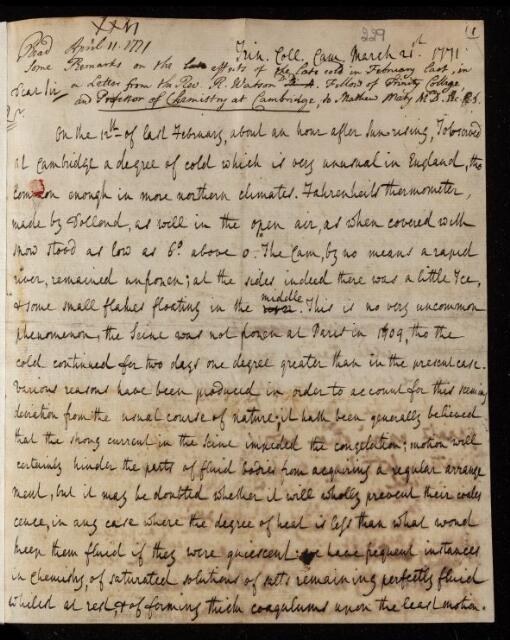 XXVI
229
1
Read April 11. 1771
Trin. Coll. Cam. March 21.st 1771
Some Remarks on the effects of the late cold in February last, in
Dear Sir
a Letter from the Rev. R. Watson Fellow of Trinity College
and Professor of Chemistry at Cambridge, to Mathew Maty M.D. Sec. R.S.
On the 12th of last February, about an hour after Sun-rising, I observed
at Cambridge a degree of cold which is very unusual in England, tho
common enough in more northern climates. Fahrenheits thermometer,
made by Dollond, as well in the open air, as when covered with
snow stood as low as 6° above 0. The Cam, by no means a rapid
river, remained unfrozen; at the sides indeed there was a little Ice,
& some small flakes floating in the middle. This is no very uncommon
phenomenon, the Seine was not frozen at Paris in 1709, tho the
cold continued for two days one degree greater than in the present case.
Various reasons have been produced in order to account for this seeming
deviation from the usual course of nature; it hath been generally believed
that the strong current in the Seine impeded the congelation; motion will
certainly hinder the parts of fluid bodies from acquiring a regular arrange
ment, but it may be doubted whether it will wholly prevent their coales
cence, in any case where the degree of heat is less than what would
keep them fluid if they were quiescent. we have frequent instances
in chemistry, of saturated solutions of salts remaining perfectly fluid
whilst at rest, & of forming thick coagulums upon the least motion.